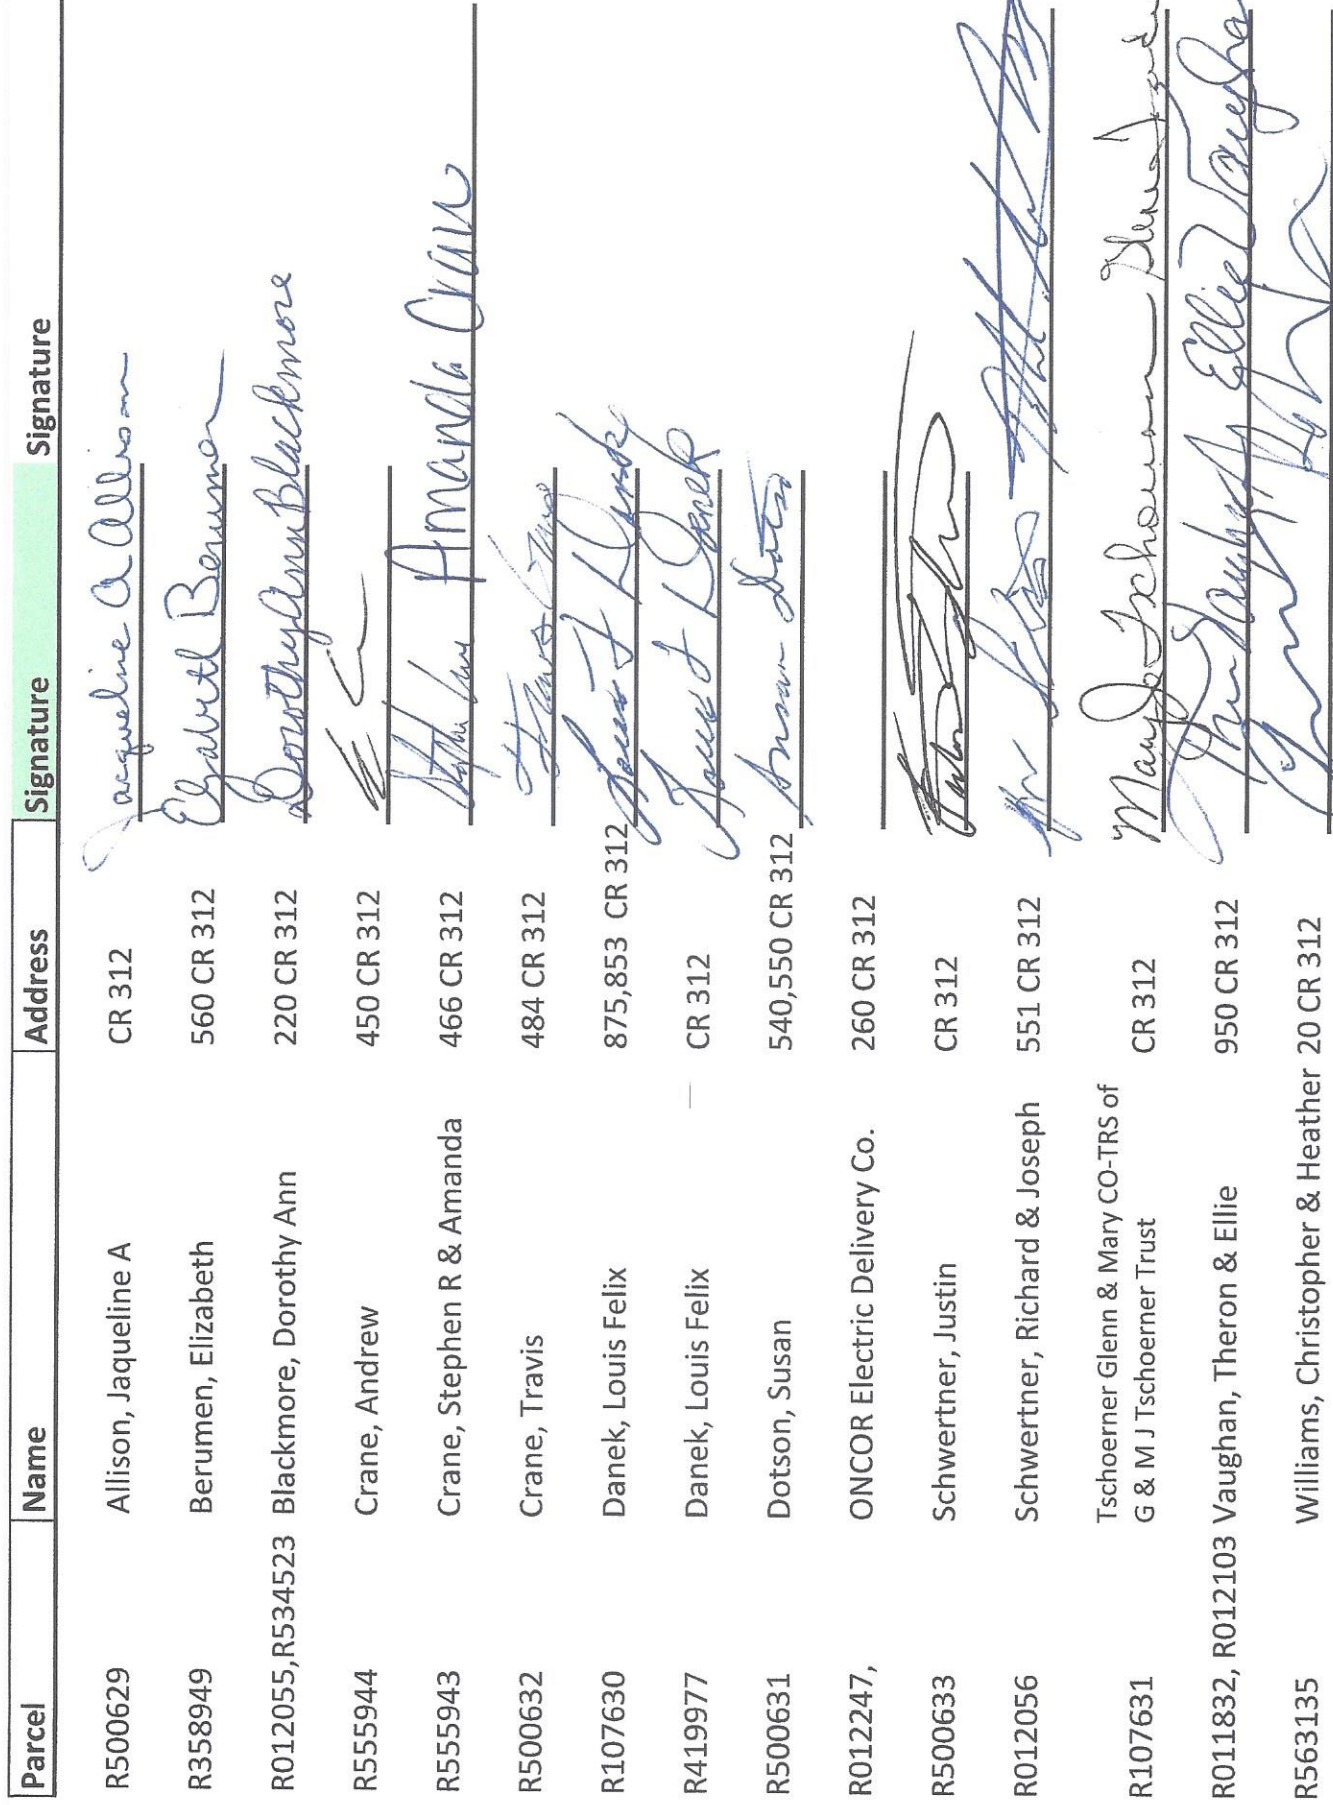 Parcel Name Address Signature Signature
R500629 Allison, Jaqueline A CR 312 Jacqueline A Allison
R358949 Berumen, Elizabeth 560 CR 312 Elizabeth Berumen
R012055,R534523 Blackmore, Dorothy Ann 220 CR 312 Dorothy Ann Blackmore
R555944 Crane, Andrew 450 CR 312
R555943 Crane, Stephen R & Amanda 466 CR 312 Amanda Crane
R500632 Crane, Travis 484 CR 312 Travis Crane
R107630 Danek, Louis Felix 875,853 CR 312 Louis F Danek
R419977 Danek, Louis Felix CR 312 Louis F Danek
R500631 Dotson, Susan 540,550 CR 312 Susan Dotson
R012247, ONCOR Electric Delivery Co. 260 CR 312
R500633 Schwertner, Justin CR 312
R012056 Schwertner, Richard & Joseph 551 CR 312
Tschoerner Glenn & Mary CO-TRS of
R107631 G & M J Tschoerner Trust CR 312 Mary Jo Tschoerner Glenn
R011832, R012103 Vaughan, Theron & Ellie 950 CR 312 Theron Vaughan Ellie Vaughan
R563135 Williams, Christopher & Heather 20 CR 312